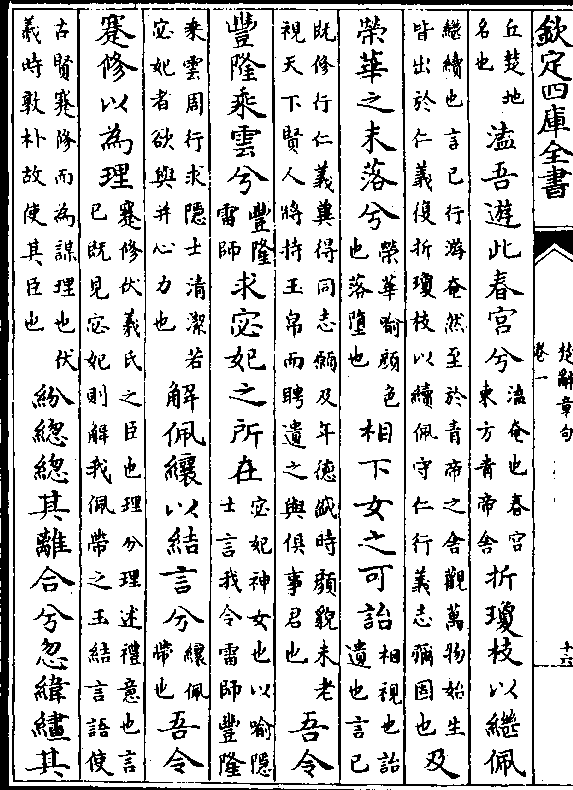 欽定四庫全書
楚辭章句
卷一
十六
丘楚地名也溘吾遊此春宫兮溘奄也春宫東方青帝舍折瓊枝以繼佩
繼續也言已行游奄然至於青帝之舍觀萬物始生皆出於仁義復折瓊枝以續佩守仁行義志彌固也及
榮華之未落兮榮華喻顔色也落墮也相下女之可詒相視也詒遺也言已
既修行仁義冀得同志願及年德盛時顔貌未老視天下賢人將持玉帛而聘遺之與俱事君也吾令
豐隆乘雲兮豐隆雷師求宓妃之所在宓妃神女也以喻隱士言我令雷師豐隆
乘雲周行求隱士清潔若宓妃者欲與并心力也解佩纕以結言兮纕佩帶也吾令
蹇修以為理蹇修伏羲氏之臣也理分理述禮意也言已既見宓妃則解我佩帶之玉結言語使
古賢蹇修而為謀理也伏羲時敦朴故使其臣也紛緫緫其離合兮忽緯繣其